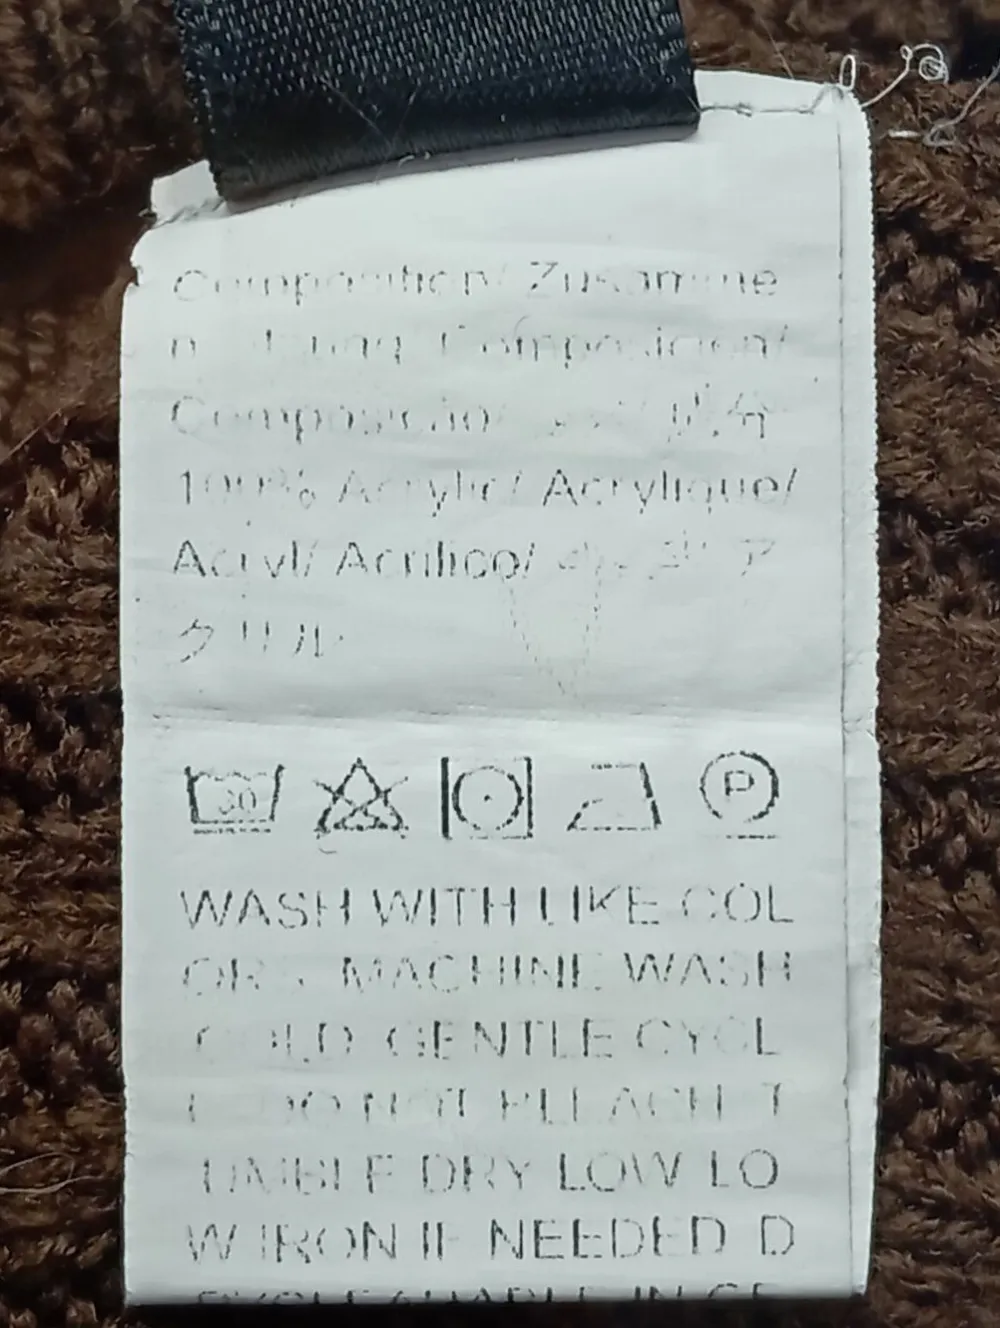 Composition/ Zusamme
nsetzung/ Composición/
Composição/
100% Acrylic/ Acrylique/
Acryl/ Acrílico/ ア
クリル
30
P
WASH WITH LIKE COL
ORS. MACHINE WASH
COLD. GENTLE CYCL
E. DO NOT BLEACH. T
UMBLE DRY LOW. LO
W IRON IF NEEDED. D